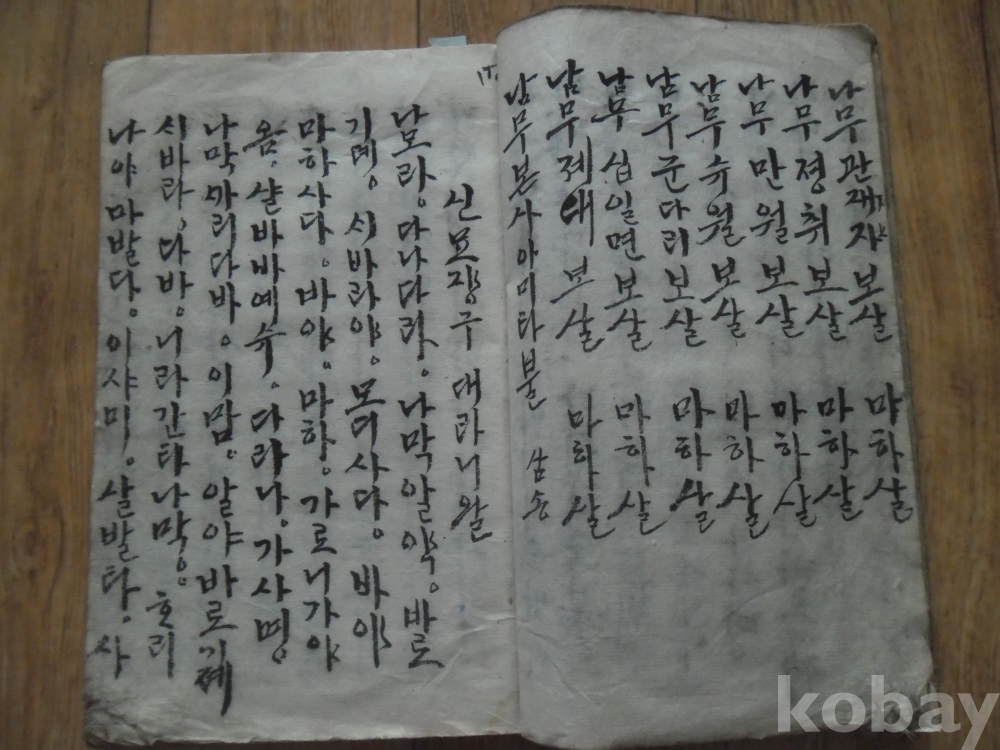 나무관재자보살 마하살
나무정취보살 마하살
나무만월보살 마하살
남무수월보살 마하살
남무군다리보살 마하살
남무십일면보살 마하살
남무제대보살 마하살
남무본사아미타불 삼송
신묘장구대라니왈
남모라。다나다라。나막알약。바로
기제。시바라야。모디사다。바야
마하사다。바야。마하。가로니가야
옴。살바바예수。다라나。가사명。
나막까리다바。이맘。알야바로기제
시바라。다바。니라간타나막。호리
나야마발다。이샤미。살발타。사
kobay